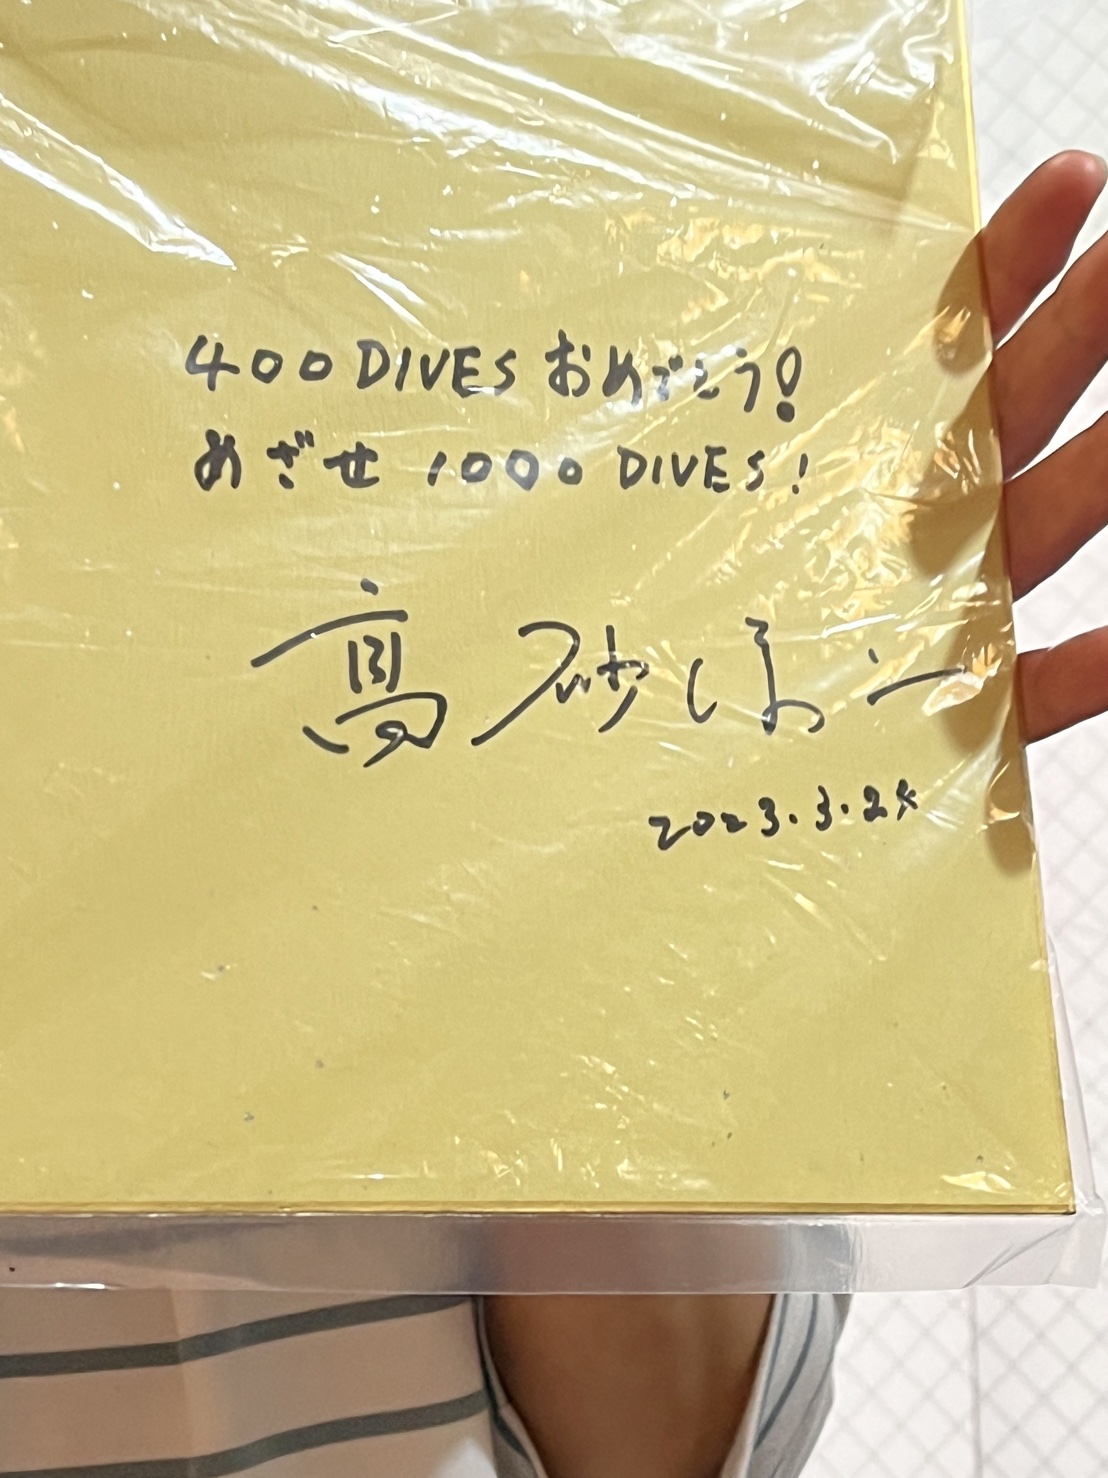 400 DIVES おめでとう!
めざせ 1000 DIVES!
高砂淳二
2023.3.24